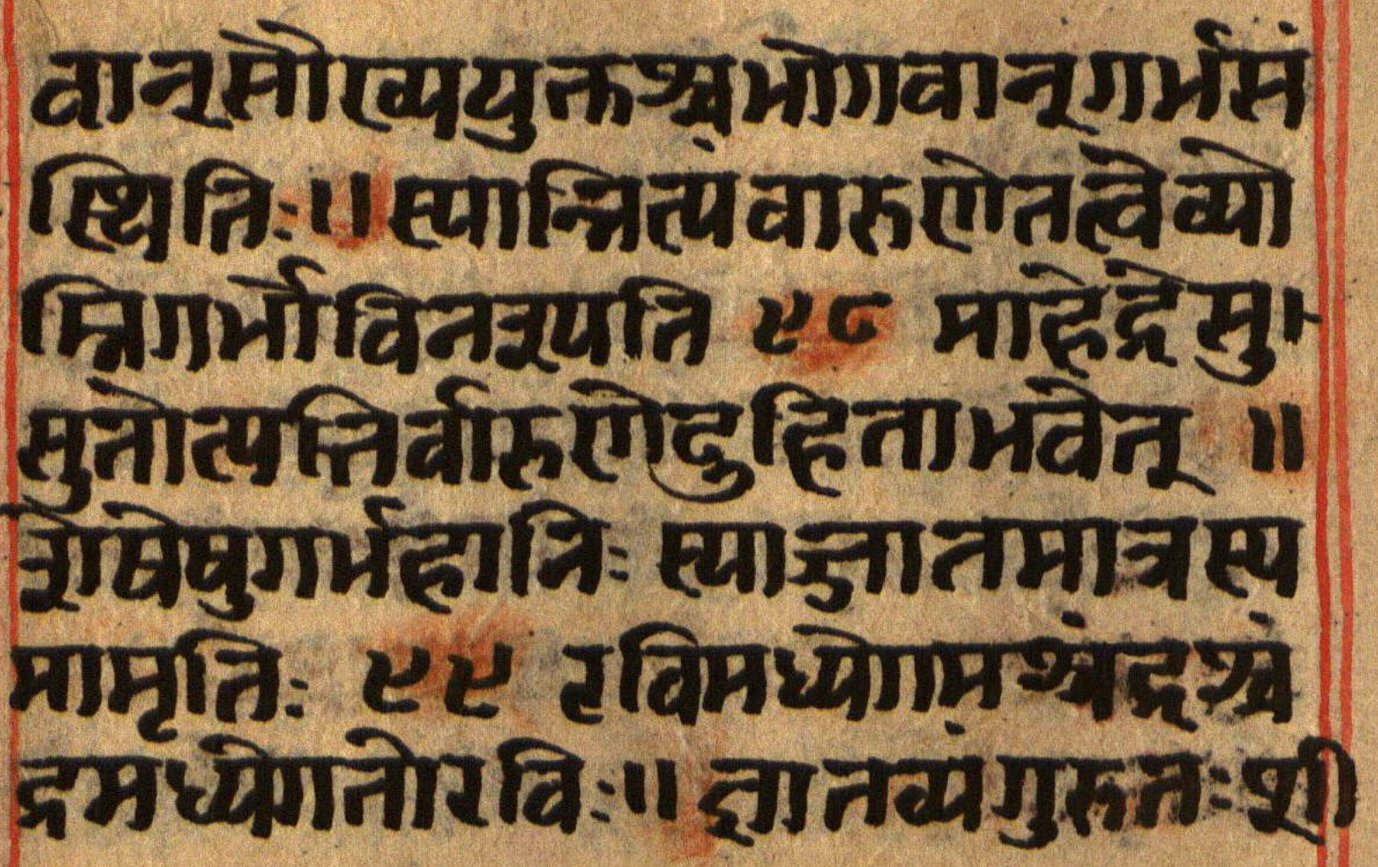 वान्सौख्ययुक्तश्च भोगवान् गर्भसं
स्थितिः ॥ स्यान्नित्यं वारुणे तत्वे व्यो
म्नि गर्भो विनश्यति ९८ माहेंद्रे सु
सुतोत्पत्तिर्वारुणे दुहिता भवेत् ॥
शेषेषु गर्भहानिः स्याज्जातमात्रस्य
मामृतिः ९९ रविमध्येगमश्चंद्रश्चं
द्रमध्येगतो रविः ॥ ज्ञातव्यं गुरुतः शी